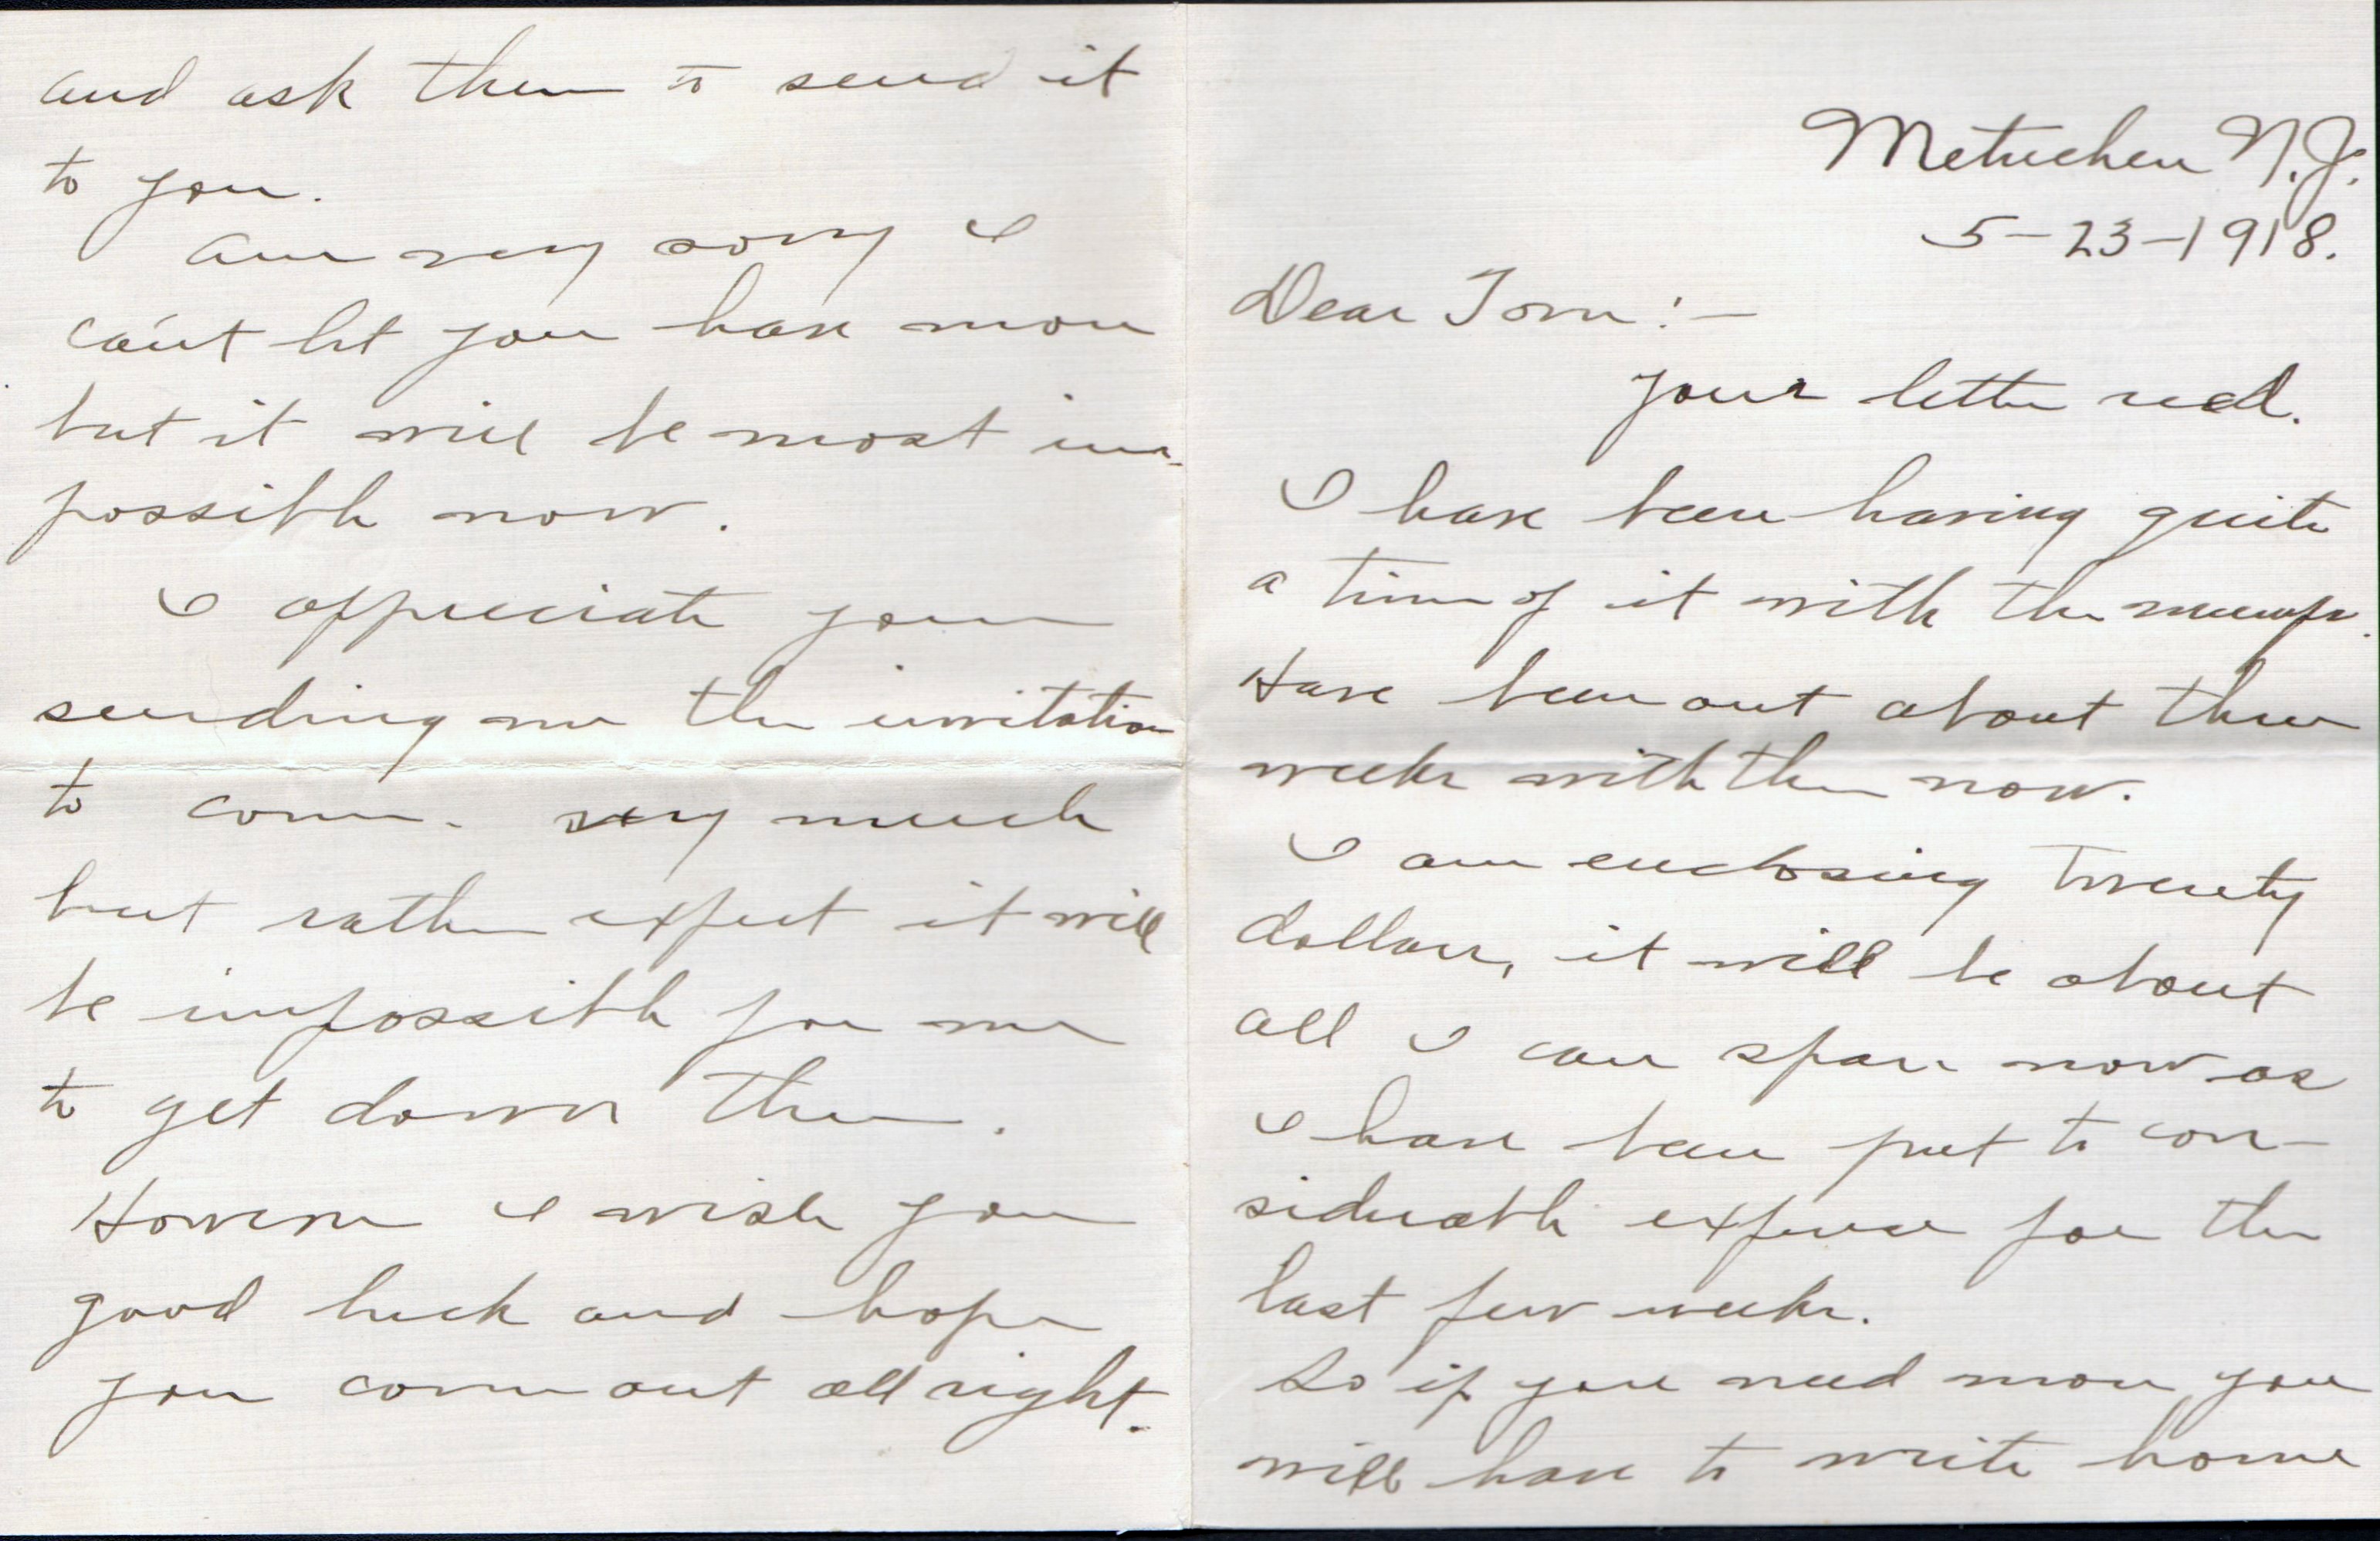 Metuchen N.J.
5-23-1918.
Dear Tom:-
your letter recd.
I have been having quite
a time of it with the mumps.
Have been out about three
weeks with them now.
I am enclosing twenty
dollars, it will be about
all I can spare now as
I have been put to con-
siderable expense for the
last few weeks.
So if you need more you
will have to write home
and ask them to send it
to you.
Am very sorry I
can't let you have more
but it will be most im-
possible now.
I appreciate your
sending me the invitation
to come. very much
but rather expect it will
be impossible for me
to get down there.
However I wish you
good luck and hope
you come out all right.